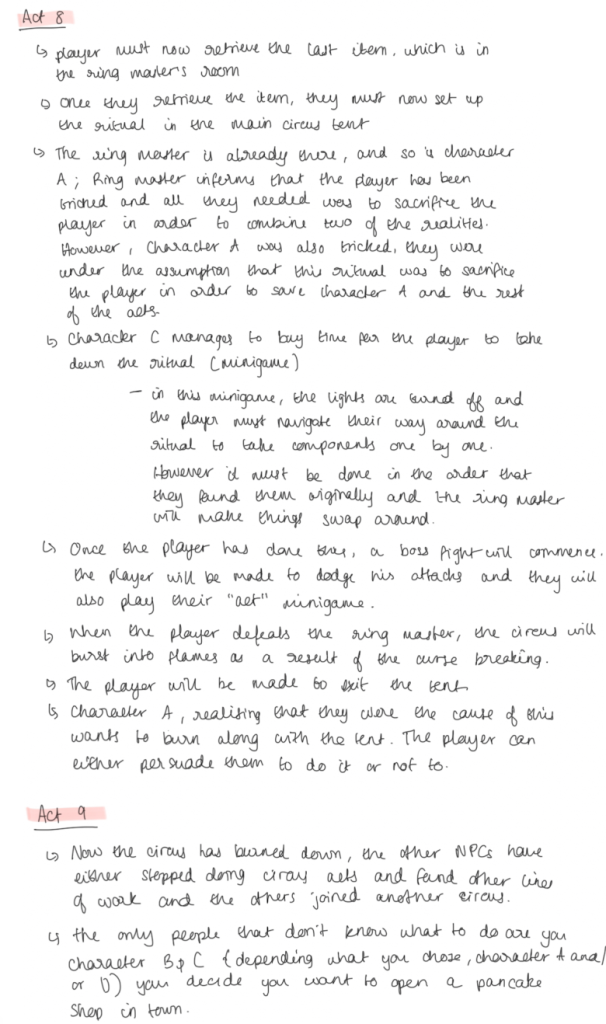 Act 8
↳ player must now retrieve the last item, which is in
the ring master's room
↳ Once they retrieve the item, they must now set up
the ritual in the main circus tent
↳ The ring master is already there, and so is character
A; Ring master informs that the player has been
tricked and all they needed was to sacrifice the
player in order to combine two of the realities.
However, Character A was also tricked, they were
under the assumption that this ritual was to sacrifice
the player in order to save character A and the rest
of the acts.
↳ Character C manages to buy time for the player to take
down the ritual (minigame)
- in this minigame, the lights are turned off and
the player must navigate their way around the
ritual to take components one by one.
However it must be done in the order that
they found them originally and the ring master
will make things swap around.
↳ Once the player has done this, a boss fight will commence.
the player will be made to dodge his attacks and they will
also play their "act" minigame.
↳ When the player defeats the ring master, the circus will
burst into flames as a result of the curse breaking.
↳ The player will be made to exit the tent
↳ Character A, realising that they were the cause of this
wants to burn along with the tent. The player can
either persuade them to do it or not to.
Act 9
↳ Now the circus has burned down, the other NPCs have
either stopped doing circus acts and found other lines
of work and the others joined another circus.
↳ the only people that don't know what to do are you
character B & C (depending what you chose, character A and/
or D) you decide you want to open a pancake
shop in town.